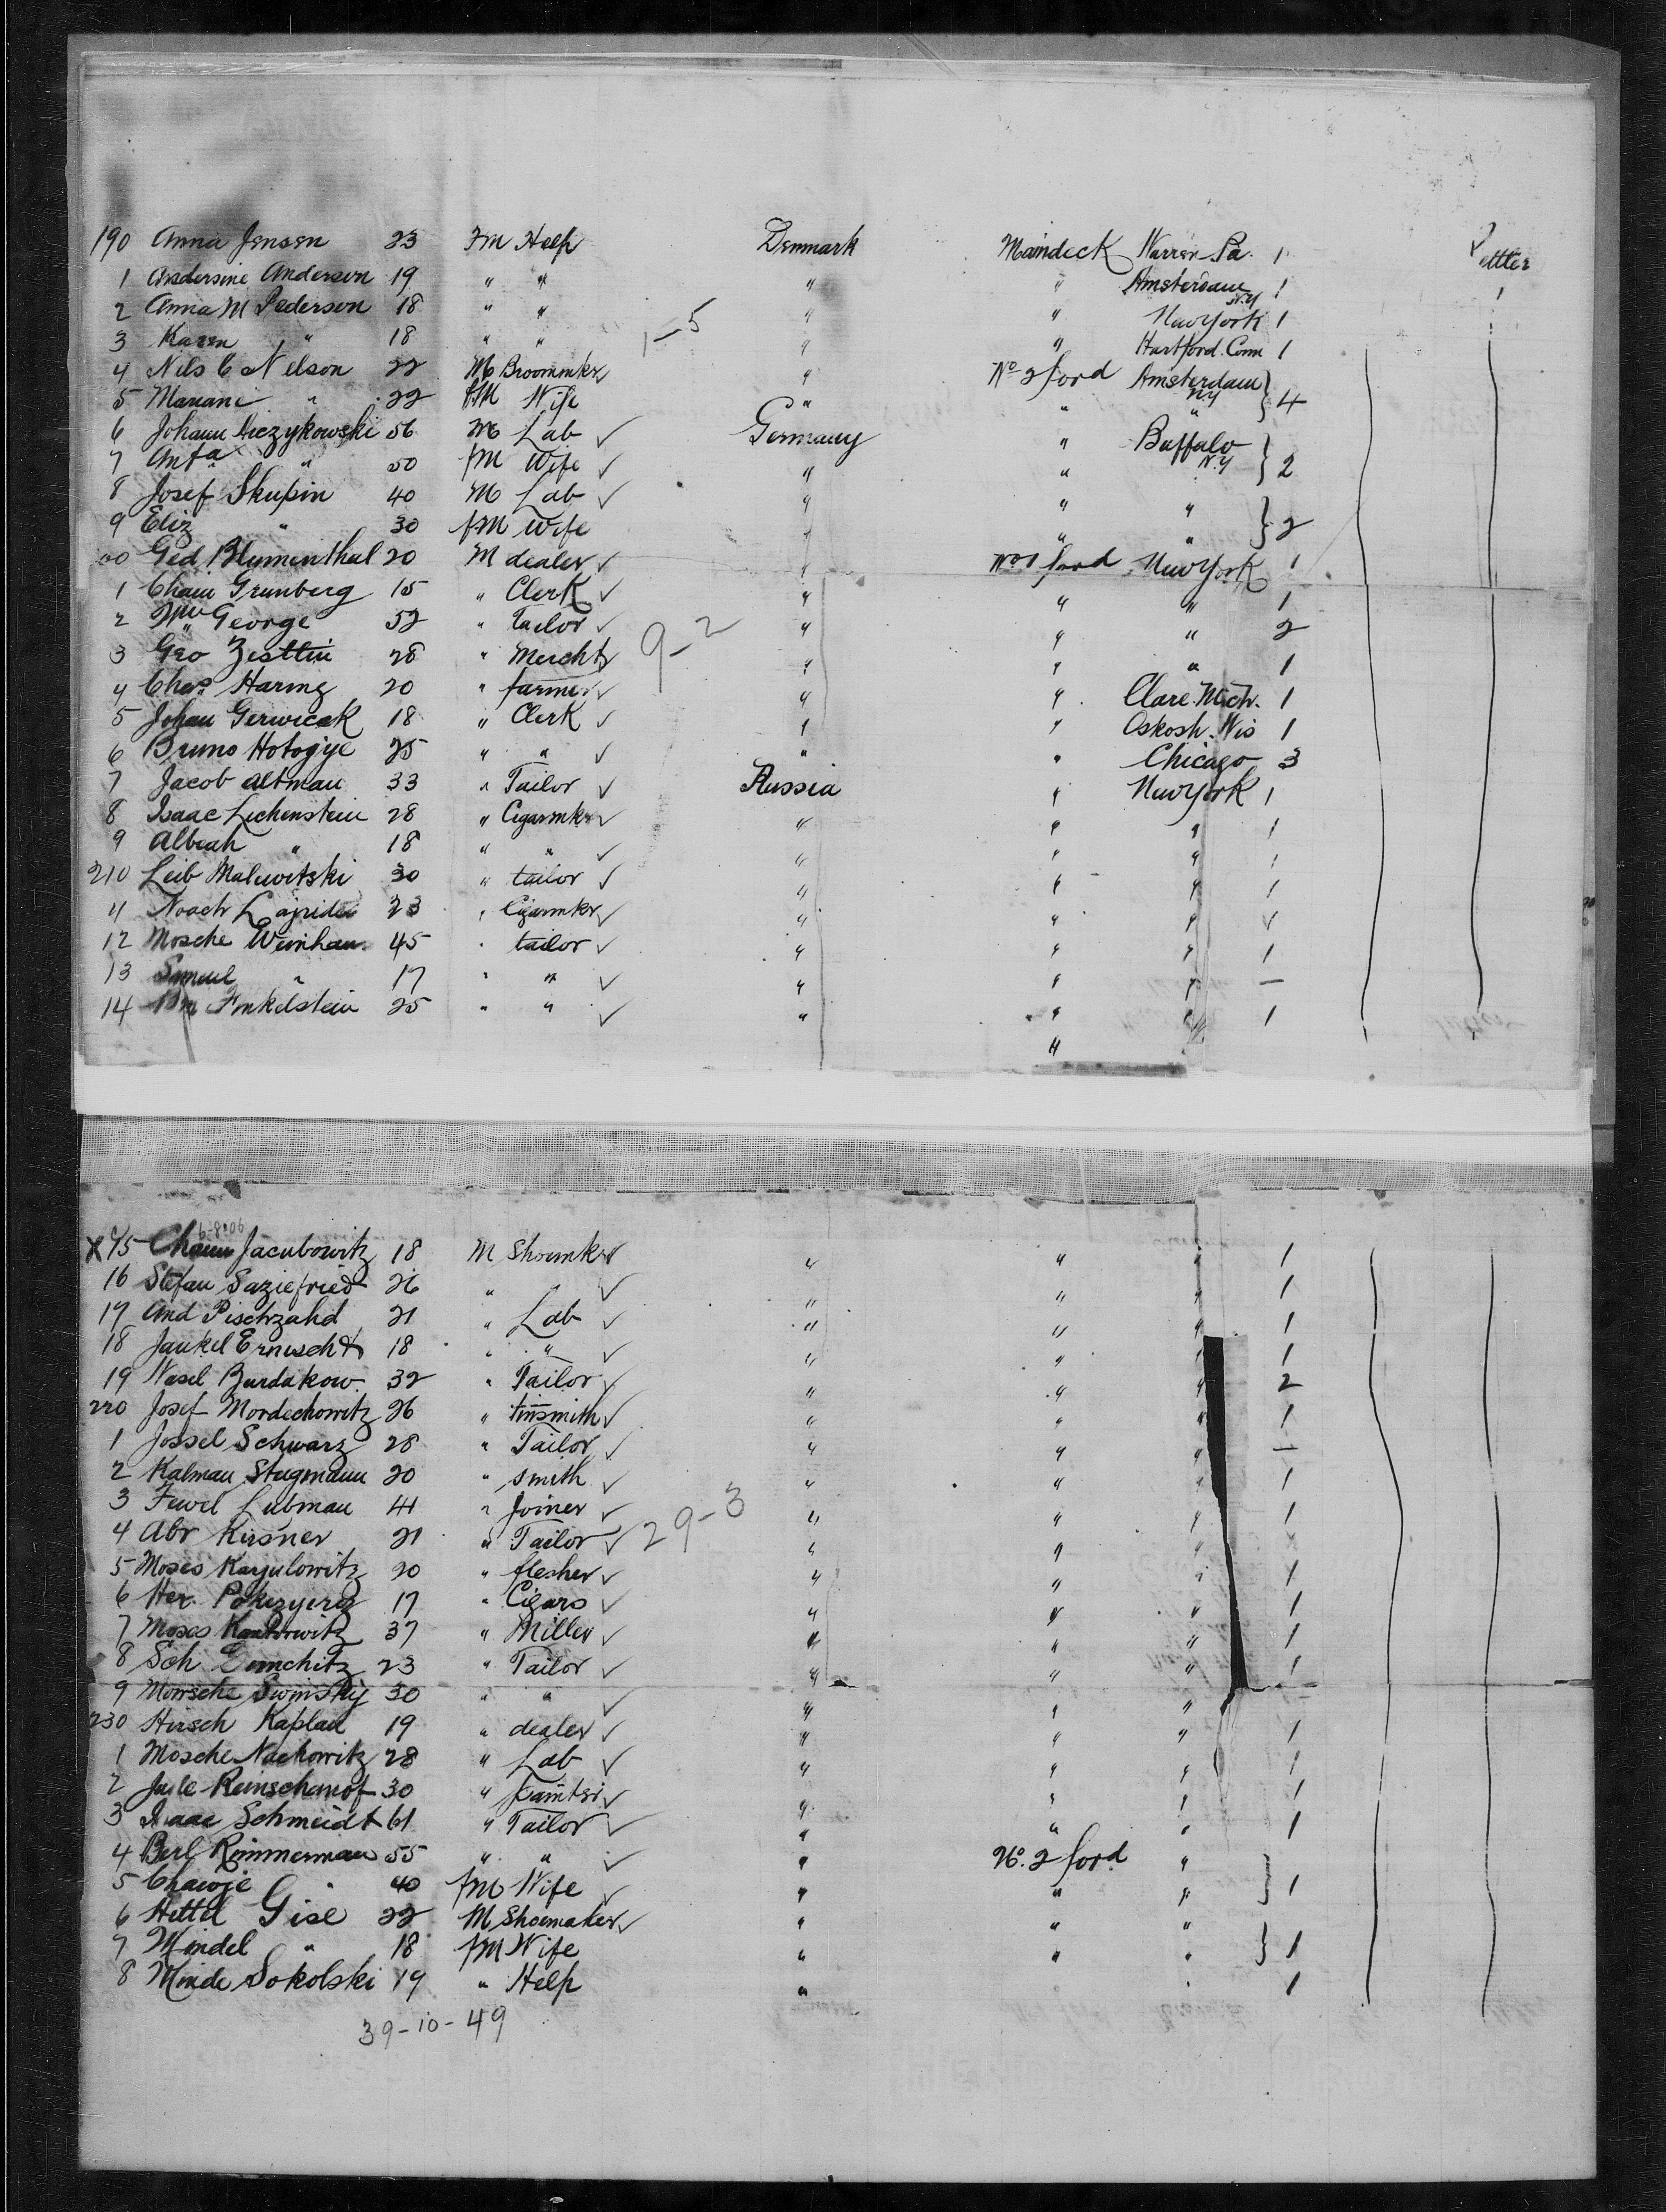 190 Anna Jensen 23 FM Help Denmark Maindeck Warren Pa. 1 Settler
1 Andersine Anderson 19 " " " " Amsterdam N.Y 1
2 Anna M Pederson 18 " " " " New York 1
3 Karen " 18 " " " " Hartford. Conn 1
1-5
4 Nils C Nelson 22 M Broommkr " No 2 ford Amsterdam NY } 4
5 Mariane " 22 FM Wife " " "
6 Johann 56 M Lab ✓ Germany " Buffalo N.Y } 2
7 Anta " 50 FM Wife ✓ " "
8 Josef Skupin 40 M Lab ✓ " " " } 2
9 Eliz " 30 FM Wife " " "
00 Ged Blumenthal 20 M dealer ✓ " No 1 ford New York 1
1 Chaim Grunberg 15 " Clerk ✓ " " " 1
2 Wm George 52 " Tailor ✓ " " " 2
9-2
3 Geo Zesttin 28 " Mercht ✓ " " " 1
4 Chas Haring 20 " farmer ✓ " " Clare Mich. 1
5 Johan Gerwicak 18 " Clerk ✓ " " Oskosh. Wis 1
6 Bruno 25 " " ✓ " " Chicago 3
7 Jacob Altman 33 " Tailor ✓ Russia " New York 1
8 Isaac Lichenstein 28 " Cigarmkr ✓ " " " 1
9 Albiah " 18 " " ✓ " " " 1
210 Leib Malewitski 30 " tailor ✓ " " " 1
11 Noach 23 " Cigarmkr ✓ " " "
12 Mosche Weinhaus 45 " tailor ✓ " " " 1
13 Samuel " 17 " " ✓ " " " —
14 Finkelstein 25 " " ✓ " " " 1
"
6-8106
X 15 Chaim Jacubowitz 18 M Shoemkr ✓ " " " 1
16 Stefan Saziefried 26 " ✓ " " " 1
17 And Pischzahd 21 " Lab ✓ " " " 1
18 Jankel 18 " " ✓ " " " 1
19 Wasel Burdakow. 32 " Tailor ✓ " " " 2
220 Josef Mordechowitz 26 " tinsmith ✓ " " " 1
1 Jossel Schwarz 28 " Tailor ✓ " " " —
2 Kalman Stegmann 20 " smith ✓ " " " 1
3 Fewel Lubman 41 " Joiner ✓ " " " 1
29-3
4 Abr Kirsner 21 " Tailor ✓ " " "
5 Moses Karjulowitz 20 " flesher ✓ " " " 1
6 Her. 17 " Cigars ✓ " " " 1
7 Moses Kantorwitz 37 " Miller ✓ " " " 1
8 Sch 23 " Tailor ✓ " " " 1
9 Morsche Swinsky 30 " " ✓ " " "
230 Hirsch Kaplan 19 " dealer ✓ " " " 1
1 Mosche Nachowitz 28 " Lab ✓ " " " 1
2 30 " painter ✓ " " " 1
3 Isaac Schmeidt 61 " Tailor ✓ " " " 1
4 Berl Rimmerman 55 " " ✓ " No. 2 ford " } 1
5 Chawje " 40 FM Wife ✓ " " "
6 Hettel Gise 22 M Shoemaker ✓ " " " } 1
7 Mindel " 18 FM Wife " " "
8 Minde Sokolski 19 " Help " " 1
39-10-49